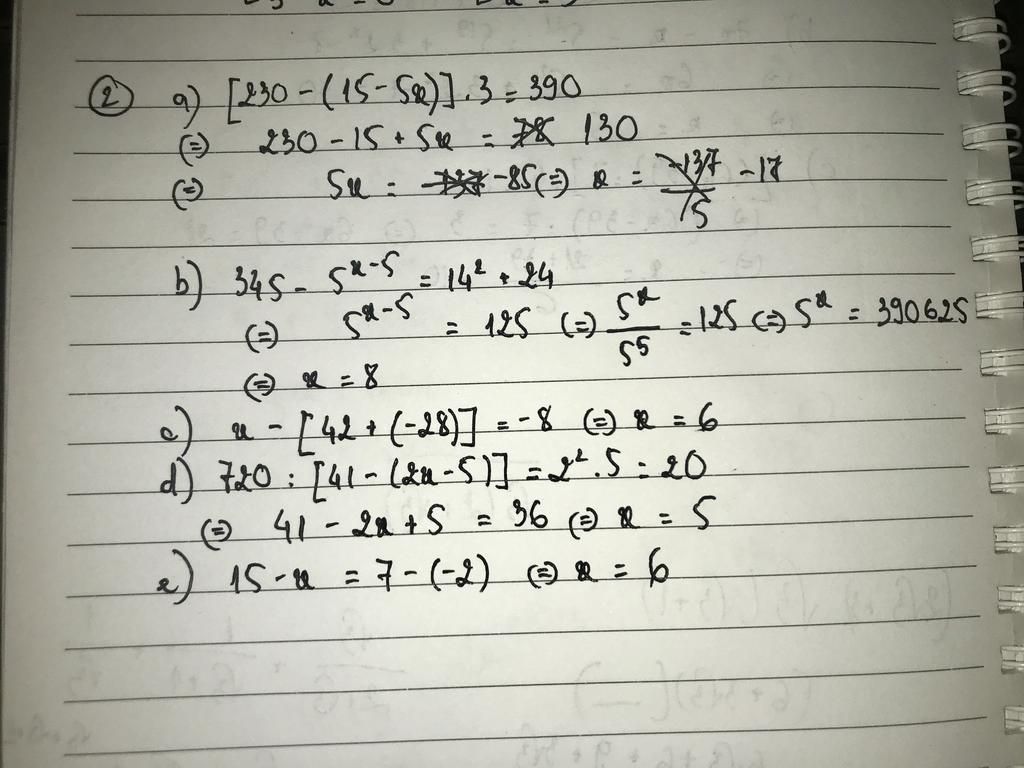 ② a) [230 - (15 - 5x)] . 3 = 390
(=) 230 - 15 + 5x = 130
(=) 5x = -85 (=) x = -17
b) 345 - 5^{x-5} = 14² + 24
(=) 5^{x-5} = 125 (=) 5^x / 5^5 = 125 (=) 5^x = 390625
(=) x = 8
c) x - [42 + (-28)] = -8 (=) x = 6
d) 720 : [41 - (2x - 5)] = 2² . 5 = 20
(=) 41 - 2x + 5 = 36 (=) x = 5
e) 15 - x = 7 - (-2) (=) x = 6